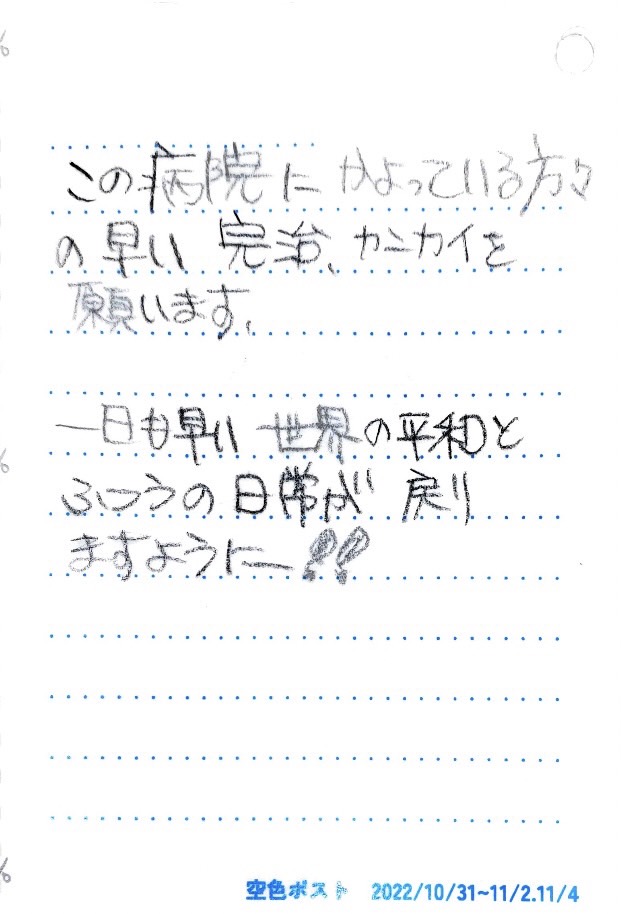 この病院に かよっている方々
の早い 完治、カンカイを
願います。
一日も早い 世界の平和と
ふつうの日常が 戻り
ますようにー!!
空色ポスト 2022/10/31~11/2.11/4